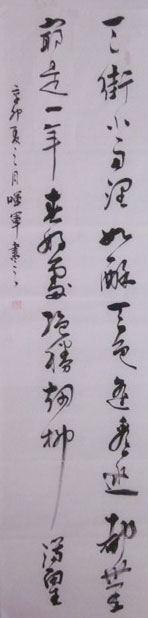 天街小雨润如酥草色遥看近却无
最是一年春好处绝胜烟柳满皇都
辛卯夏之月晖军书